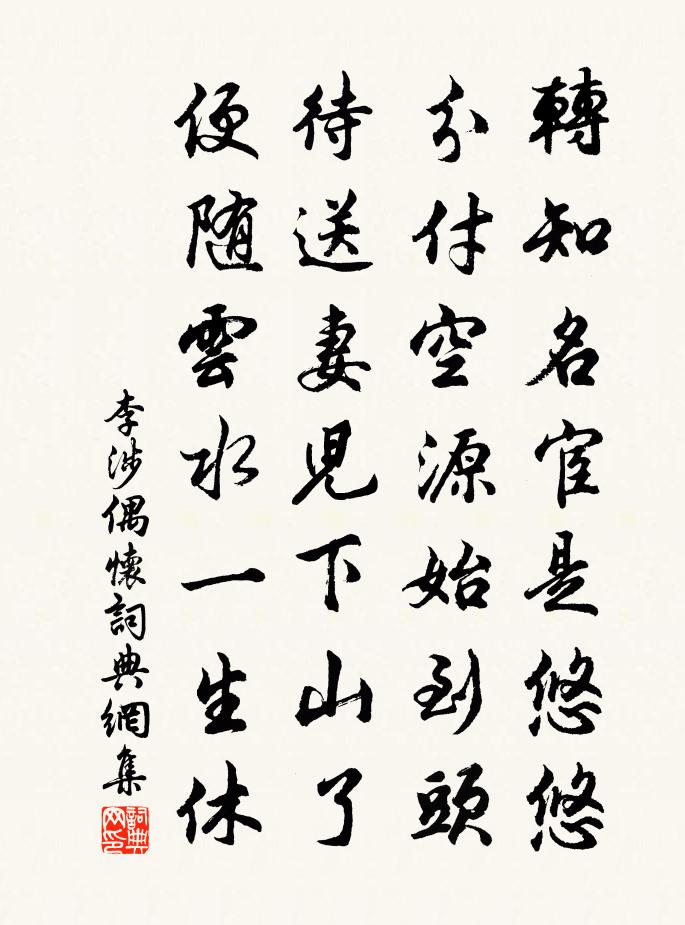 轉知名宦是悠悠
分付空源始到頭
待送妻兒下山了
便随雲水一生休
李涉偶懷詞典網集
詞典网印